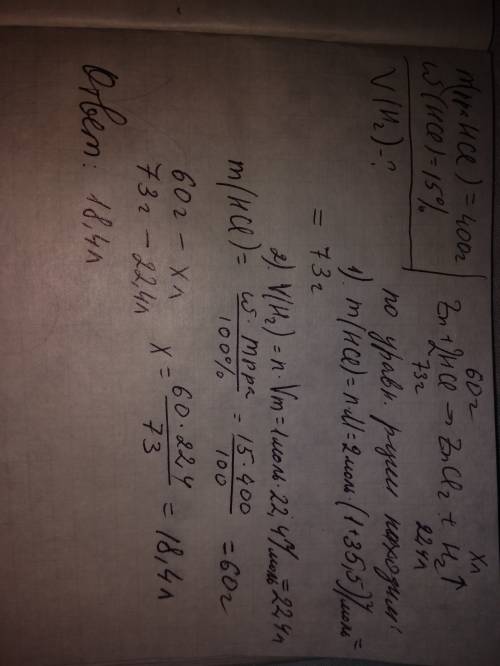 m(р-ра HCl) = 400г
ω(HCl) = 15%
V(H₂) - ?
60г xл
Zn + 2HCl → ZnCl₂ + H₂↑
73г 22,4л
по уравн. р-ции находим:
1). m(HCl) = n·M = 2моль·(1+35,5)г/моль =
= 73г
2). V(H₂) = n·Vm = 1моль·22,4л/моль = 22,4л
m(HCl) = ω·mр-ра / 100% = 15·400 / 100 = 60г
60г – xл
73г – 22,4л x = 60·22,4 / 73 = 18,4л
Ответ: 18,4л